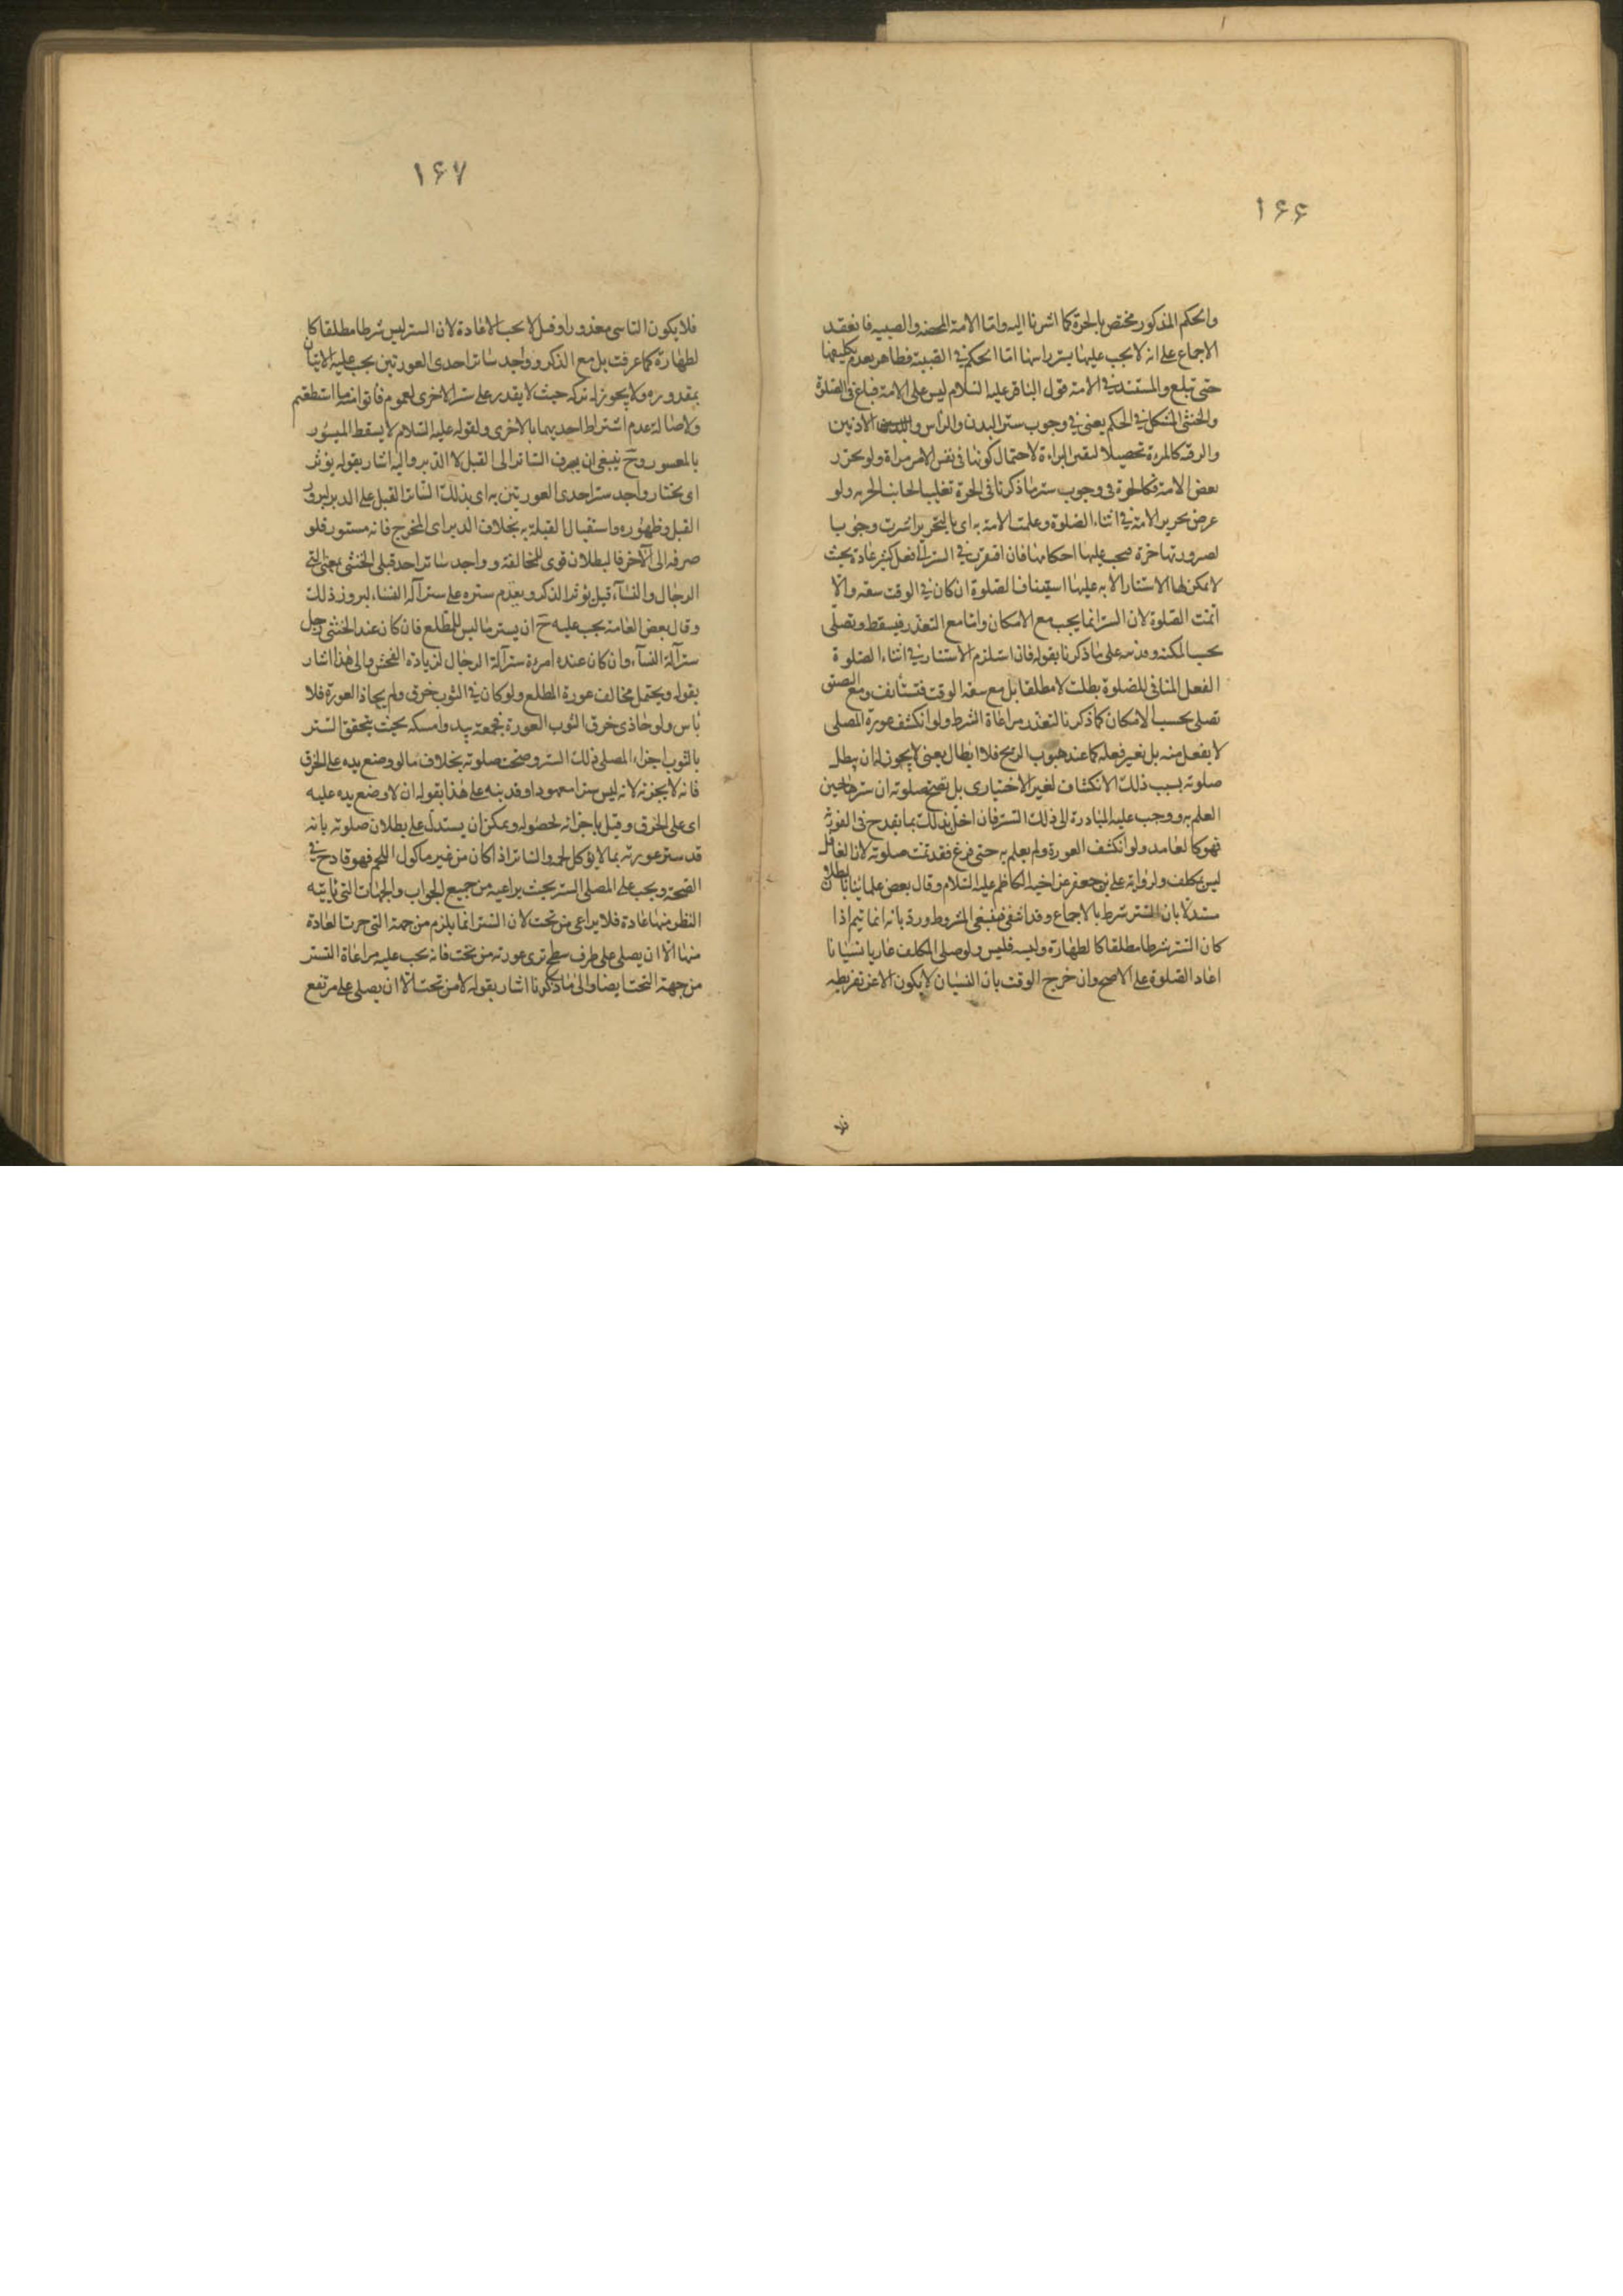 ١۶۶
والحكم المذكور مختص بالحرة كما اشرنا اليه واما الامة المحضة والصبية فانعقد
الاجماع على انه لا يجب عليهما ستر راسهما اما الحكم في الصبية فظاهر لعدم تكليفها
حتى تبلغ والمستند في الامة قول الباقر عليه السلام ليس على الامة قناع في الصلوة
والخنثى المشكل في الحكم يعني في وجوب ستر البدن والراس الاذنين
والرقبة كالمرءة تحصيلا ليقين البراءة لاحتمال كونها في نفس الامر مراة ولو تحرر
بعض الامة فكالحرة في وجوب ستر ما ذكرنا في الحرة تغليبا لجانب الحرية ولو
عرض تحرير الامة في اثناء الصلوة وعلمت الامة به اى بالتحرير استترت وجوبا
لصيرورتها حرة فيجب عليها احكامها فان افتقرت في الستر الى فعل كثير عادة بحيث
لا يمكن لها الاستتار الا به عليها استيناف الصلوة ان كان في الوقت سعة والا
اتمت الصلوة لان الستر انما يجب مع الامكان واما مع التعذر فيسقط وتصلى
بحسب المكنة على ما ذكرنا بقوله فان استلزم الاستتار في اثناء الصلوة
الفعل المنافى للصلوة بطلت لا مطلقا بل مع سعة الوقت فتستأنف ومع الضيق
تصلى بحسب الامكان كما ذكرنا لتعذر مراعاة الشرط ولو انكشف عورة المصلى
لا بفعل منه بل بغير فعله كما عند هبوب الريح فلا ابطال يعنى لا يجوز له ان يبطل
صلوته بسبب ذلك الانكشاف لغير الاختيارى بل تصح صلوته ان سترها حين
العلم به ووجب عليه المبادرة الى ذلك الستر فان اخل بذلك بما يقدح في الفورية
فهو كالعامد ولو انكشف العورة ولم يعلم به حتى فرغ فقد تمت صلوته لان الغافل
ليس بمكلف ولرواية على بن جعفر عن اخيه الكاظم عليه السلام وقال بعض علمائنا بالبطلان
مستدلا بان الستر شرط بالاجماع وقد انتفى فينتفى المشروط ورد بانه انما تيم اذا
كان الستر شرطا مطلقا كالطهارة وليس فليس ولو صلى المكلف عاريا نسيانا
اعاد الصلوة على الاصح وان خرج الوقت بان النسيان لا يكون الا عن تفريطه
١۶٧
فلا يكون الناسى معذورا وقيل لا يجب الاعادة لان الستر ليس شرطا مطلقا كا
لطهارة كما عرفت بل مع الذكر وواجد ساتر احدى العورتين يجب عليه الاتيان
بمقدوره ولا يجوز له تركه حيث لا يقدر على ستر الاخرى لعموم فأتوا منه ما استطعتم
ولاصالة عدم اشتراط احديهما بالاخرى ولقوله عليه السلام لا يسقط الميسور
بالمعسور وح ينبغى ان يصرف الساتر الى القبل لا الدبر واليه اشار بقوله يؤثر
اى يختار واجد ستر احدى العورتين به اى بذلك الساتر القبل على الدبر لبروز
القبل وظهوره واستقبال القبلة به بخلاف الدبر اى المخرج فانه مستور فلو
صرفه الى الآخر فالبطلان قوى للمخالفة وواجد ساتر احد قبلى الخنثى يعنى التى
الرجال والنساء قيل يؤثر الذكر ويقدم ستره على ستر آلة النساء لبروز ذلك
وقال بعض العامة يجب عليه ح ان يستر ما ليس للمطلع فان كان عند الخنثى رجل
ستر آلة النساء وان كان عنده امرءة ستر آلة الرجال لزيادة الفحش والى هذا اشار
بقوله ويحتمل مخالف عورة المطلع ولو كان في الثوب خرق ولم يحاذ العورة فلا
باس ولو حاذى خرق الثوب العورة فجمعه بيده وامسكه بحيث يتحقق الستر
بالثوب اجزاء المصلى ذلك الستر وصحت صلوته بخلاف ما لو وضع يده على الخرق
فانه لا يجزئه لانه ليس سترا معهودا وقد ينبه على هذا بقوله ان لا وضع يده عليه
اى على الخرق وقيل باجزائه لحصوله ويمكن ان يستدل على بطلان صلوته بانه
قد ستر عورته بما لا يؤكل لحمه والساتر اذا كان من غير ماكول اللحم فهو قادح في
الصحة ويجب على المصلى الستر بحيث يراعيه من جميع الجوانب والجهات التى ياتيه
النظر منها عادة فلا يراعى من تحت لان الستر انما يلزم من جهة التى جرت العادة
منها الا ان يصلى على طرف سطح ترى عورته من تحت فانه يجب عليه مراعاة التستر
من جهة التحت ايضا والى ما ذكرنا اشار بقوله لا من تحت الا ان يصلى على مرتفع